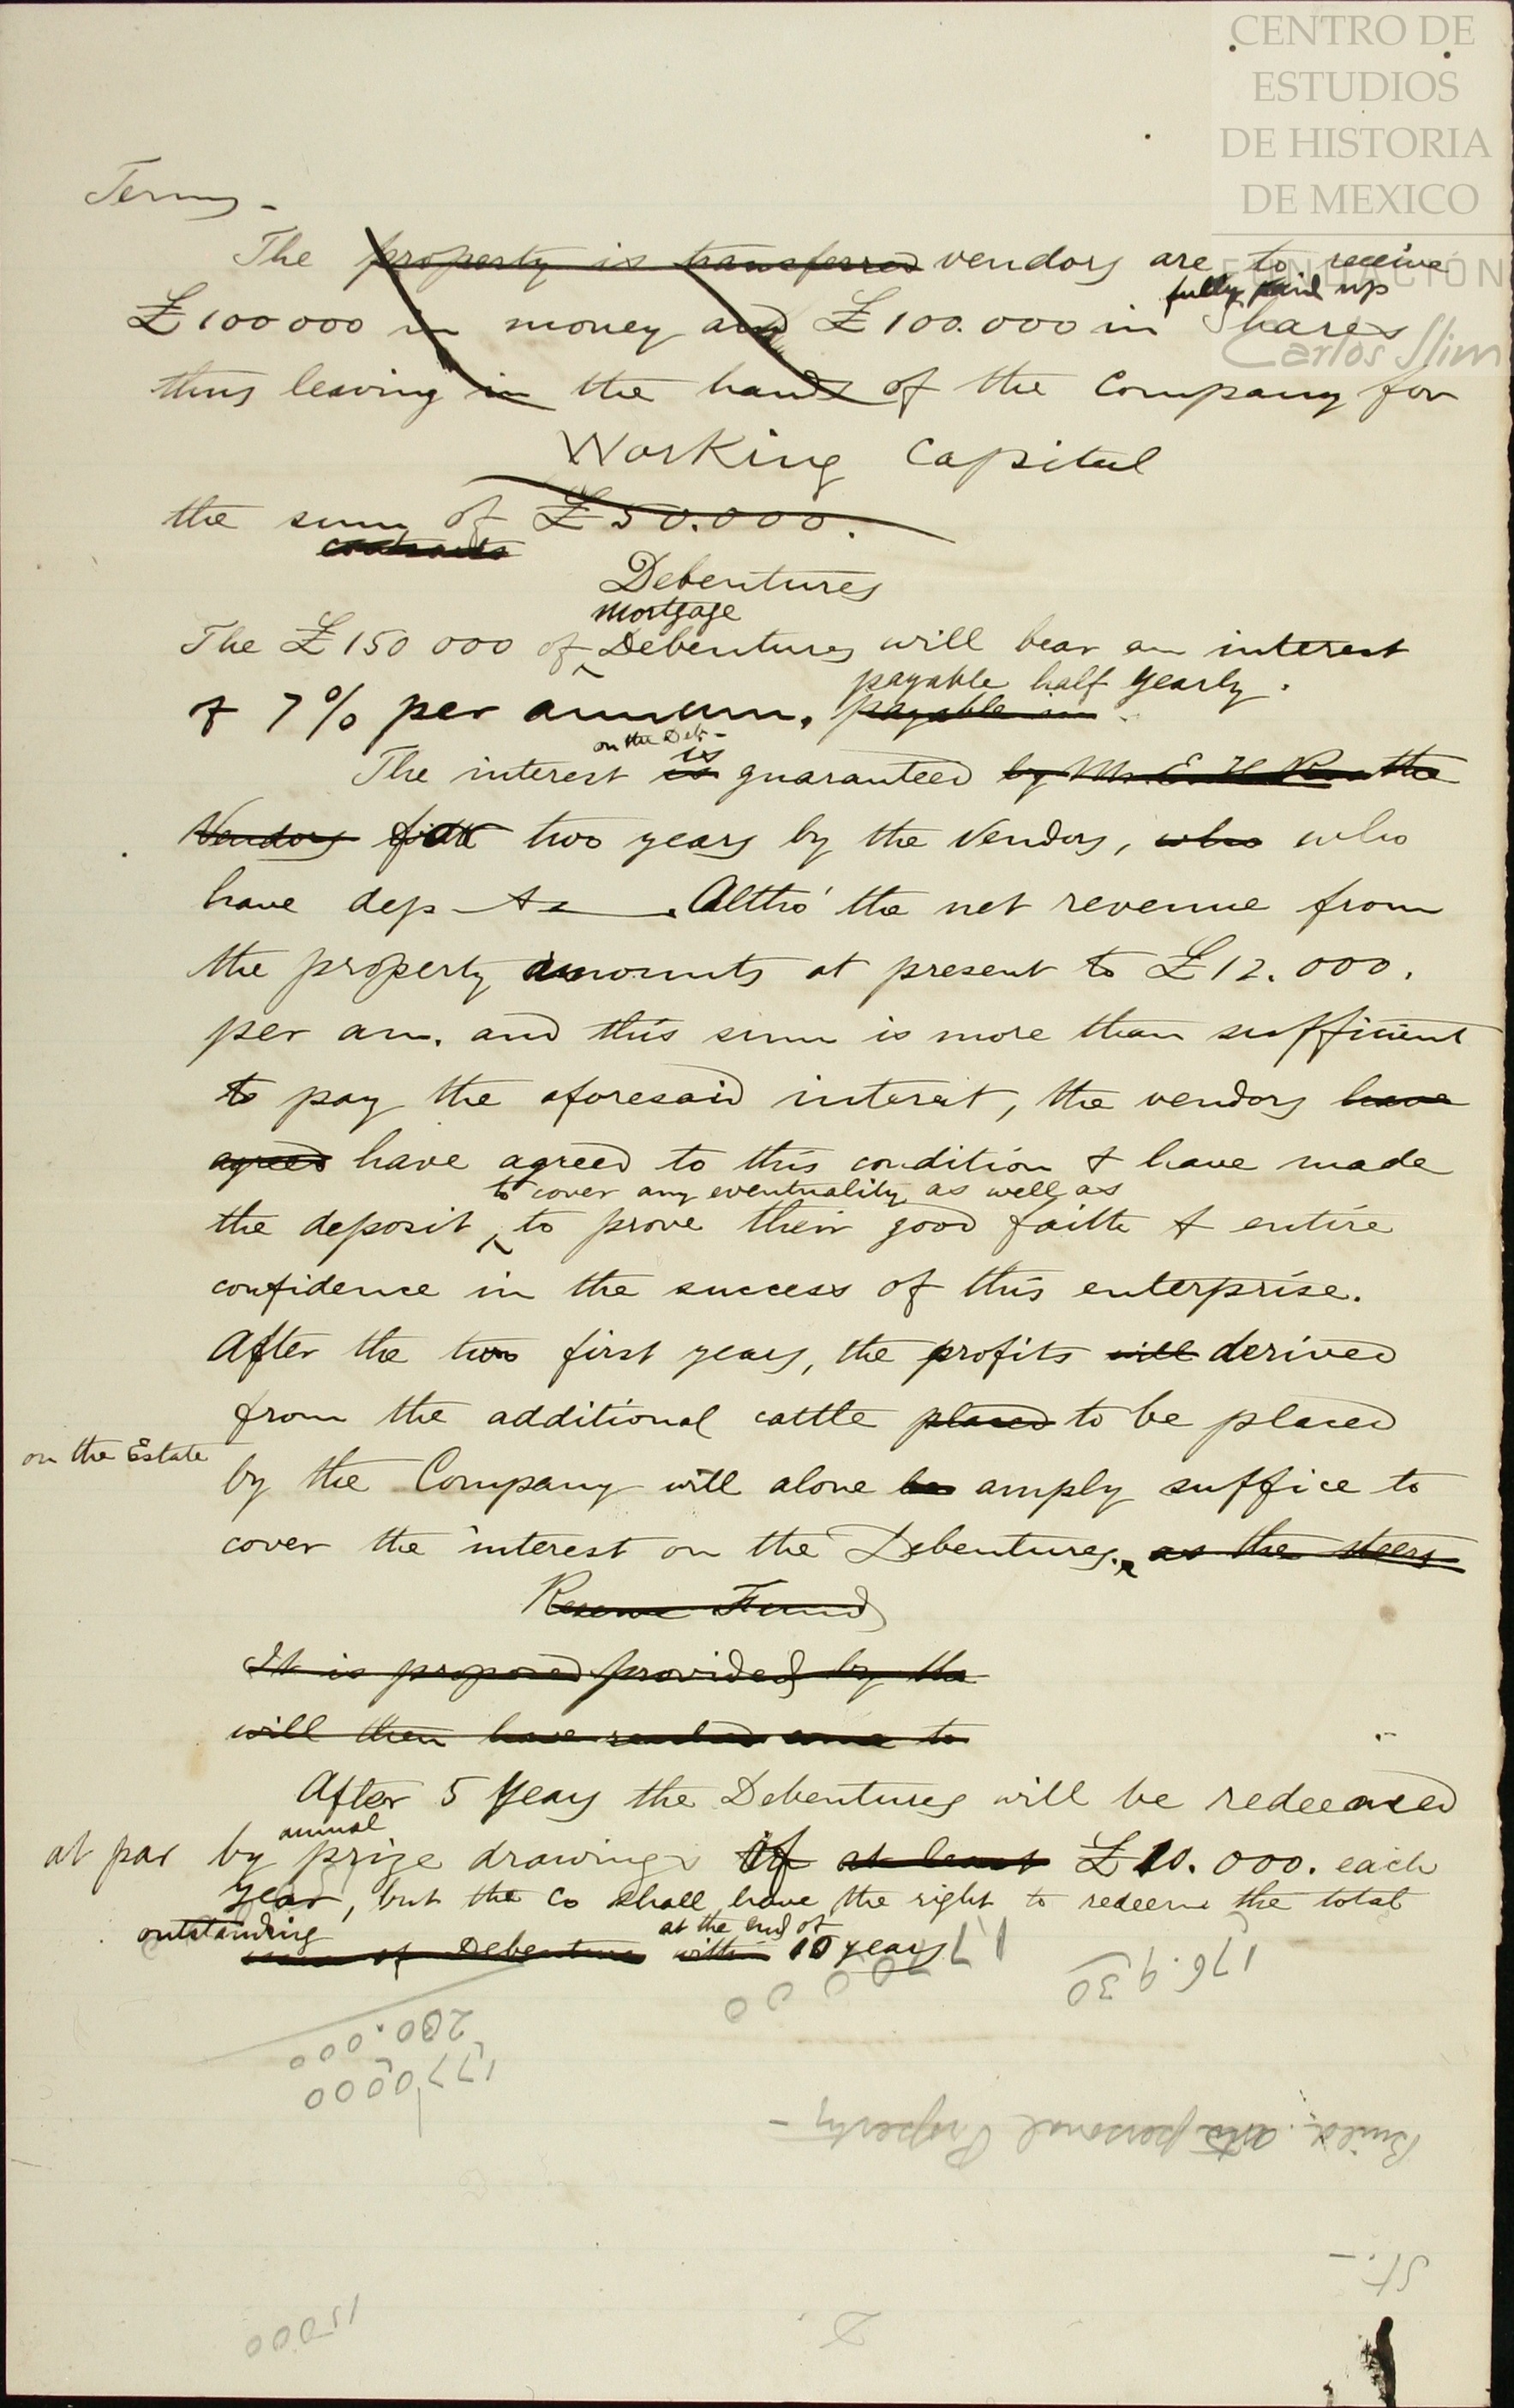 CENTRO DE
ESTUDIOS
DE HISTORIA
DE MEXICO
FUNDACIÓN
Carlos Slim
Terms -
The property is transferred vendors are to receive
fully paid up
£100000 in money and £100.000 in Shares
thus leaving in the hands of the Company for
Working Capital
the sum of £50.000.
contracts
Debentures
mortgage
The £150 000 of Debentures will bear an interest
payable half yearly.
of 7% per annum. payable in
on the Deb - is
The interest is guaranteed by Mr E the
Vendors for two years by the Vendors, who who
have dep. Altho' the net revenue from
the property amounts at present to £12.000.
per an. and this sum is more than sufficient
to pay the aforesaid interest, the vendors have
agreed have agreed to this condition & have made
to cover any eventuality as well as
the deposit, to prove their good faith & entire
confidence in the success of this enterprise.
After the two first years, the profits will derived
from the additional cattle placed to be placed
on the Estate
by the Company will alone be amply suffice to
cover the interest on the Debentures. as the steers
Reserve Fund
It is proposed provided by the
will then have to
After 5 years the Debentures will be redeemed
annual
at par by prize drawings of at least £10.000. each
year, but the Co shall have the right to redeem the total
outstanding at the end of
of Debenture within 10 years
176.930
200.000
1770000
Build. and personal Property -
St. -
15000